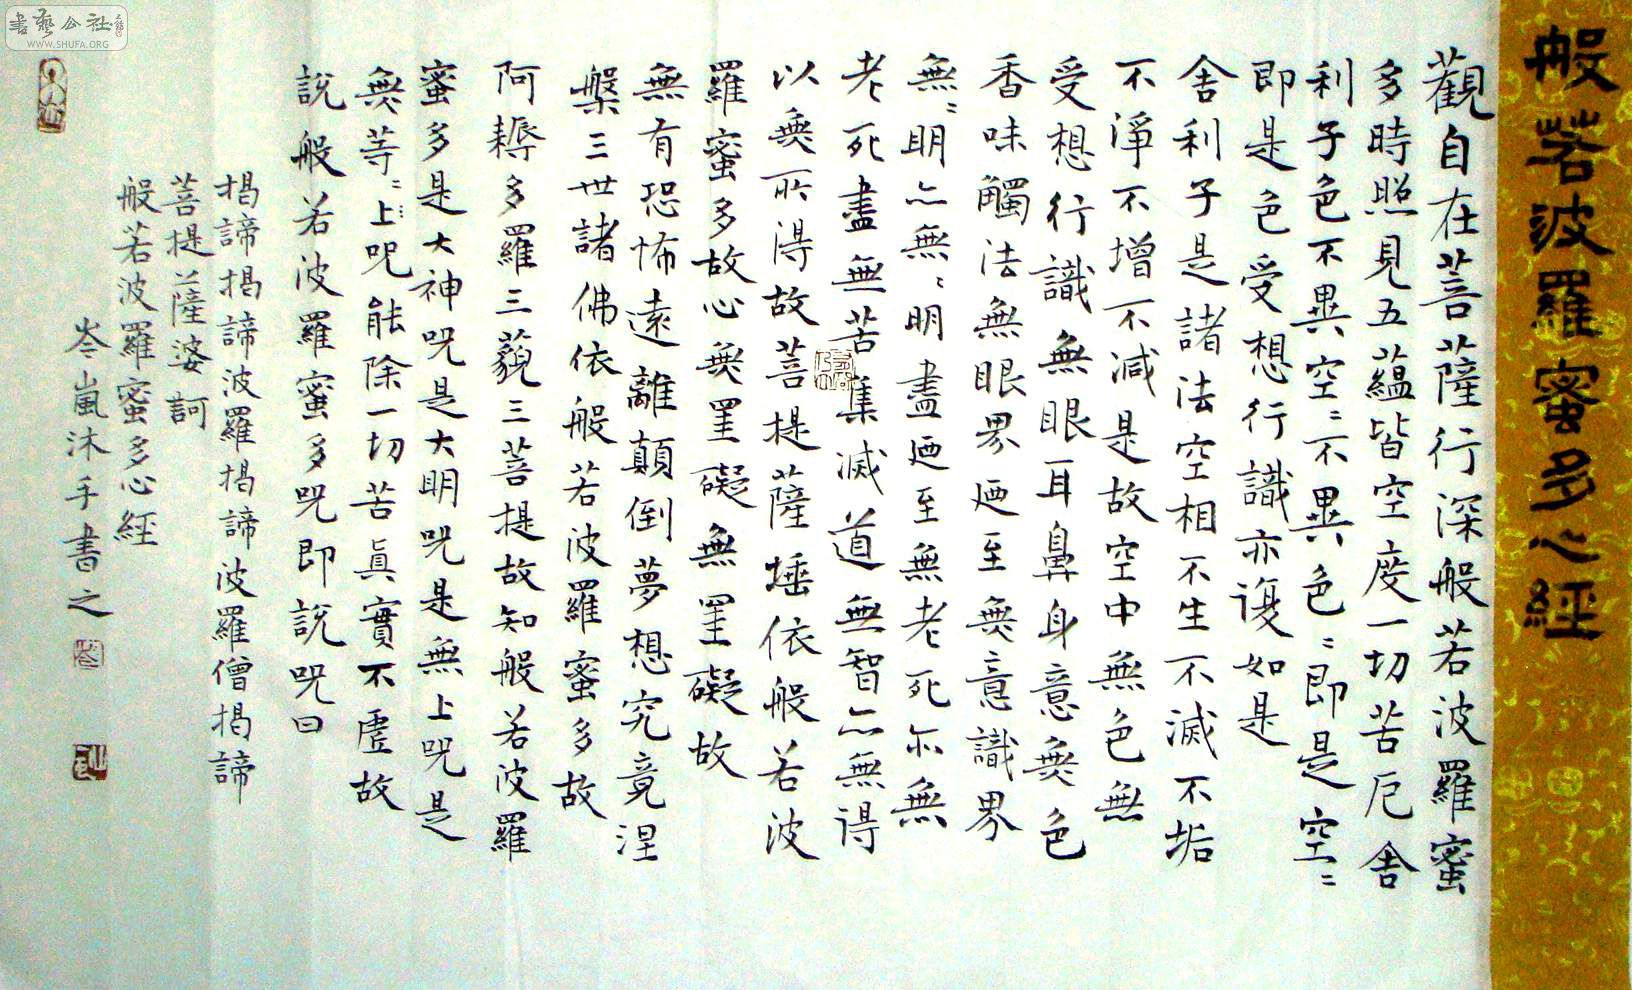 般若波羅蜜多心經
觀自在菩薩行深般若波羅蜜
多時照見五蘊皆空度一切苦厄舍
利子色不異空〻不異色〻即是空〻
即是色受想行識亦復如是
舍利子是諸法空相不生不滅不垢
不淨不增不減是故空中無色無
受想行識無眼耳鼻身意無色
香味觸法無眼界廼至無意識界
無〻明亦無〻明盡廼至無老死亦無
老死盡無苦集滅道無智亦無得
以無所得故菩提薩埵依般若波
羅蜜多故心無罣礙無罣礙故
無有恐怖遠離顛倒夢想究竟涅
槃三世諸佛依般若波羅蜜多故
阿耨多羅三藐三菩提故知般若波羅
蜜多是大神咒是大明咒是無上咒是
無等〻上咒能除一切苦眞實不虛故
說般若波羅蜜多咒即說咒曰
揭諦揭諦波羅揭諦波羅僧揭諦
菩提薩婆訶
般若波羅蜜多心經
岑嵐沐手書之
書藝公社
WWW.SHUFA.ORG